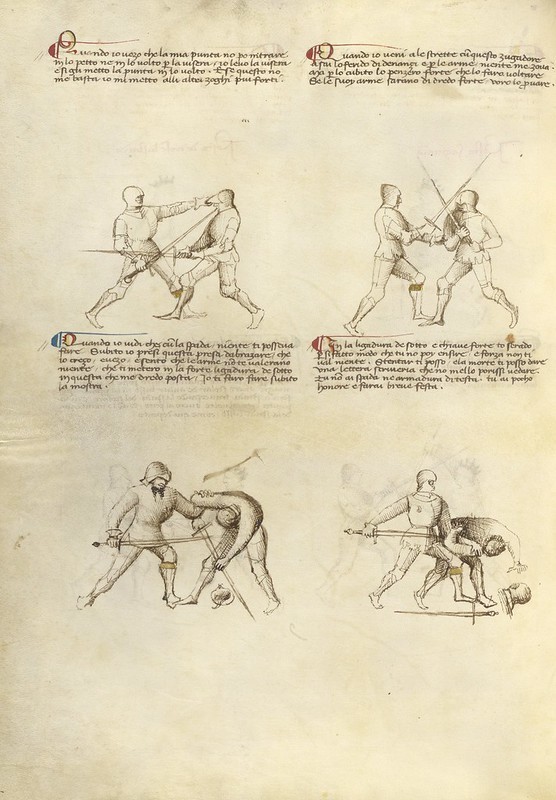 Quando io vezo che la mia punta no po intrare
in lo petto ne in lo volto p la visera · io levo la visera
e si gli metto la punta in lo volto · E se questo no
me basta io mi metto alli altri zoghi piu forti ·
Quando io veni a le strette cu questo zugadore
Assai lo feri dedenanzi e p le arme niente me zova ·
ora p lo cubito lo penzero forte che lo faro voltare
Se le suoy arme sarano di dredo forte voro lo pvare ·
Quando io vidi che cu la spada niente ti posseva
fare Subito io presi questa presa dabrazare · che
io crezo e vezo e sento che le arme no te valerano
niente che ti metero in la forte ligadura de sotto
in questa che me dredo posta · Io ti faro fare subito
la mostra ·
In la ligadura de sotto e chiave forte to serado
p si fatto modo che tu no poy ensire e forza non ti
val niente · Stentar ti posso e la morte ti posso dare
una lettera scriveria che no mello porissi vedare ·
Tu no ai spada ne armadura di testa · tu ai pocho
honore e farai breve festa ·